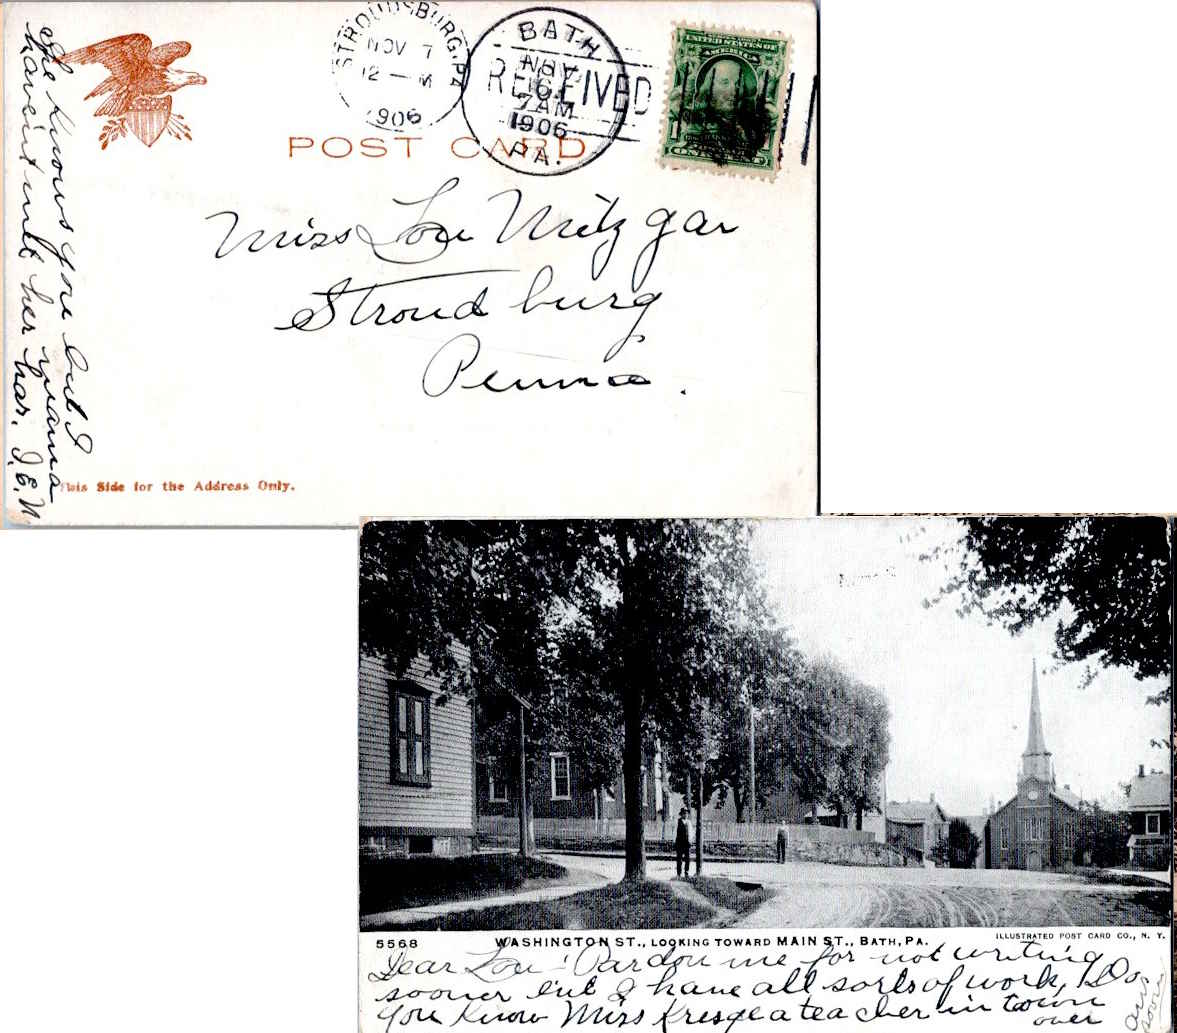 She knows you but I
haven't met her mama
has. I.E.N
STROUDSBURG, PA
NOV 7
12 - M
1906
BATH
NOV
6
7 AM
1906
PA.
RECEIVED
UNITED STATES OF
AMERICA
POST CARD
Miss Lou Metzgar
Stroudsburg
Penna.
This Side for the Address Only.
5568
WASHINGTON ST., LOOKING TOWARD MAIN ST., BATH, PA.
ILLUSTRATED POST CARD CO., N. Y.
Dear Lou! Pardon me for not writing
sooner but I have all sorts of work, Do
you know Miss Kresge a teacher in town
over
Ans
soon